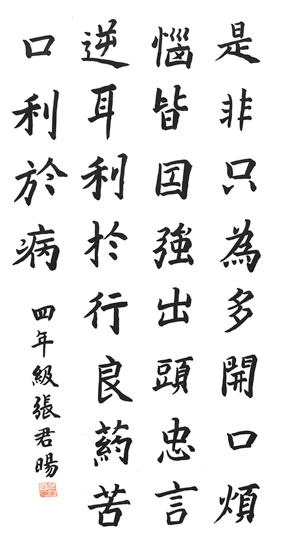 是非只為多開口煩
惱皆因強出頭忠言
逆耳利於行良药苦
口利於病
四年級張君暘